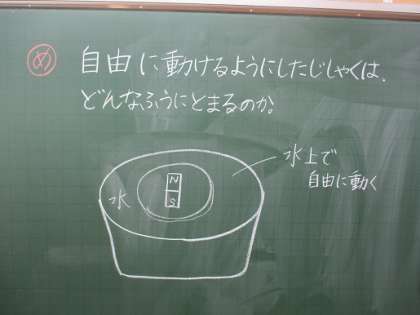 め
自由に動けるようにしたじしゃくは、
どんなふうにとまるのか。
水上で
自由に動く
水
N
S